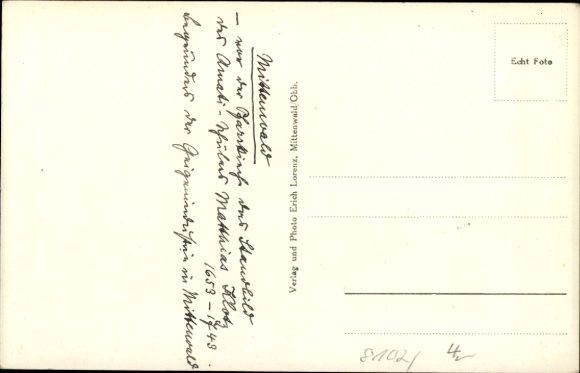 Mittenwald
– vor der Pfarrkirche das Standbild
des Amati-Schülers Matthias Klotz
1653 – 1743
Begründers der Geigenindustrie in Mittenwald
Verlag und Photo Erich Lorenz, Mittenwald/Obb.
Echt Foto
8102/